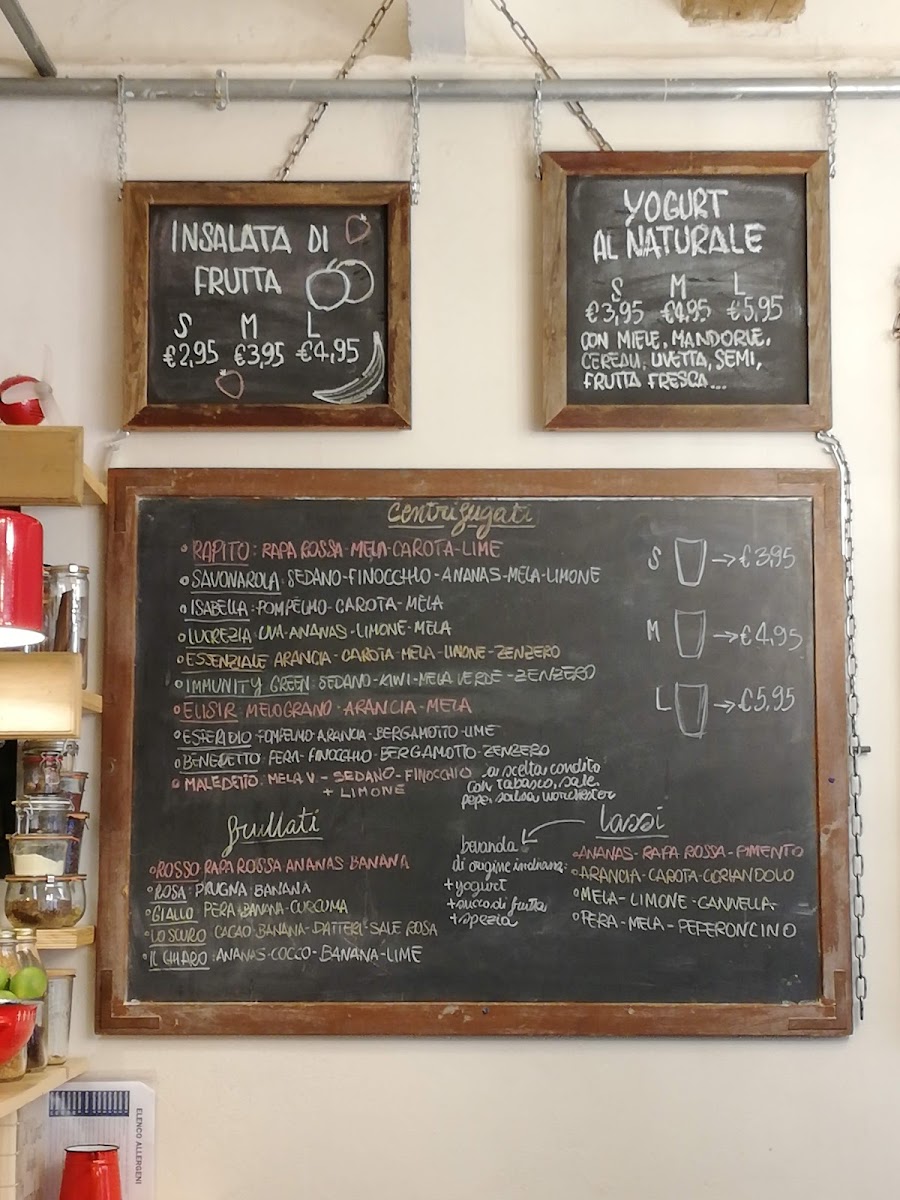 INSALATA DI
FRUTTA
S M L
€2,95 €3,95 €4,95
YOGURT
AL NATURALE
S M L
€3,95 €4,95 €5,95
CON MIELE, MANDORLE,
CEREALI, UVETTA, SEMI,
FRUTTA FRESCA...
Centrifugati
RAPITO: RAPA ROSSA-MELA-CAROTA-LIME
SAVONAROLA: SEDANO-FINOCCHIO-ANANAS-MELA-LIMONE
ISABELLA: POMPELMO-CAROTA-MELA
LUCREZIA: UVA-ANANAS-LIMONE-MELA
ESSENZIALE ARANCIA-CAROTA-MELA-LIMONE-ZENZERO
IMMUNITY GREEN: SEDANO-KIWI-MELA VERDE-ZENZERO
ELISIR MELOGRANO-ARANCIA-MELA
ESPERIDIO: POMPELMO-ARANCIA-BERGAMOTTO-LIME
BENEDETTO: PERA-FINOCCHIO-BERGAMOTTO-ZENZERO
MALEDETTO: MELA V.-SEDANO-FINOCCHIO
+ LIMONE
a scelta condito
con tabasco, sale
pepe, salsa worchester
S →€3,95
M →€4,95
L →€5,95
frullati
ROSSO RAPA ROSSA ANANAS BANANA
ROSA: PRUGNA BANANA
GIALLO: PERA-BANANA-CURCUMA
LO SCURO: CACAO-BANANA-DATTERI-SALE ROSA
IL CHIARO: ANANAS-COCCO-BANANA-LIME
bevanda
di origine indiana:
+yogurt
+succo di frutta
+spezia
lassi
ANANAS-RAPA ROSSA-PIMENTO
ARANCIA-CAROTA-CORIANDOLO
MELA-LIMONE-CANNELLA
PERA-MELA-PEPERONCINO
ELENCO ALLERGENI